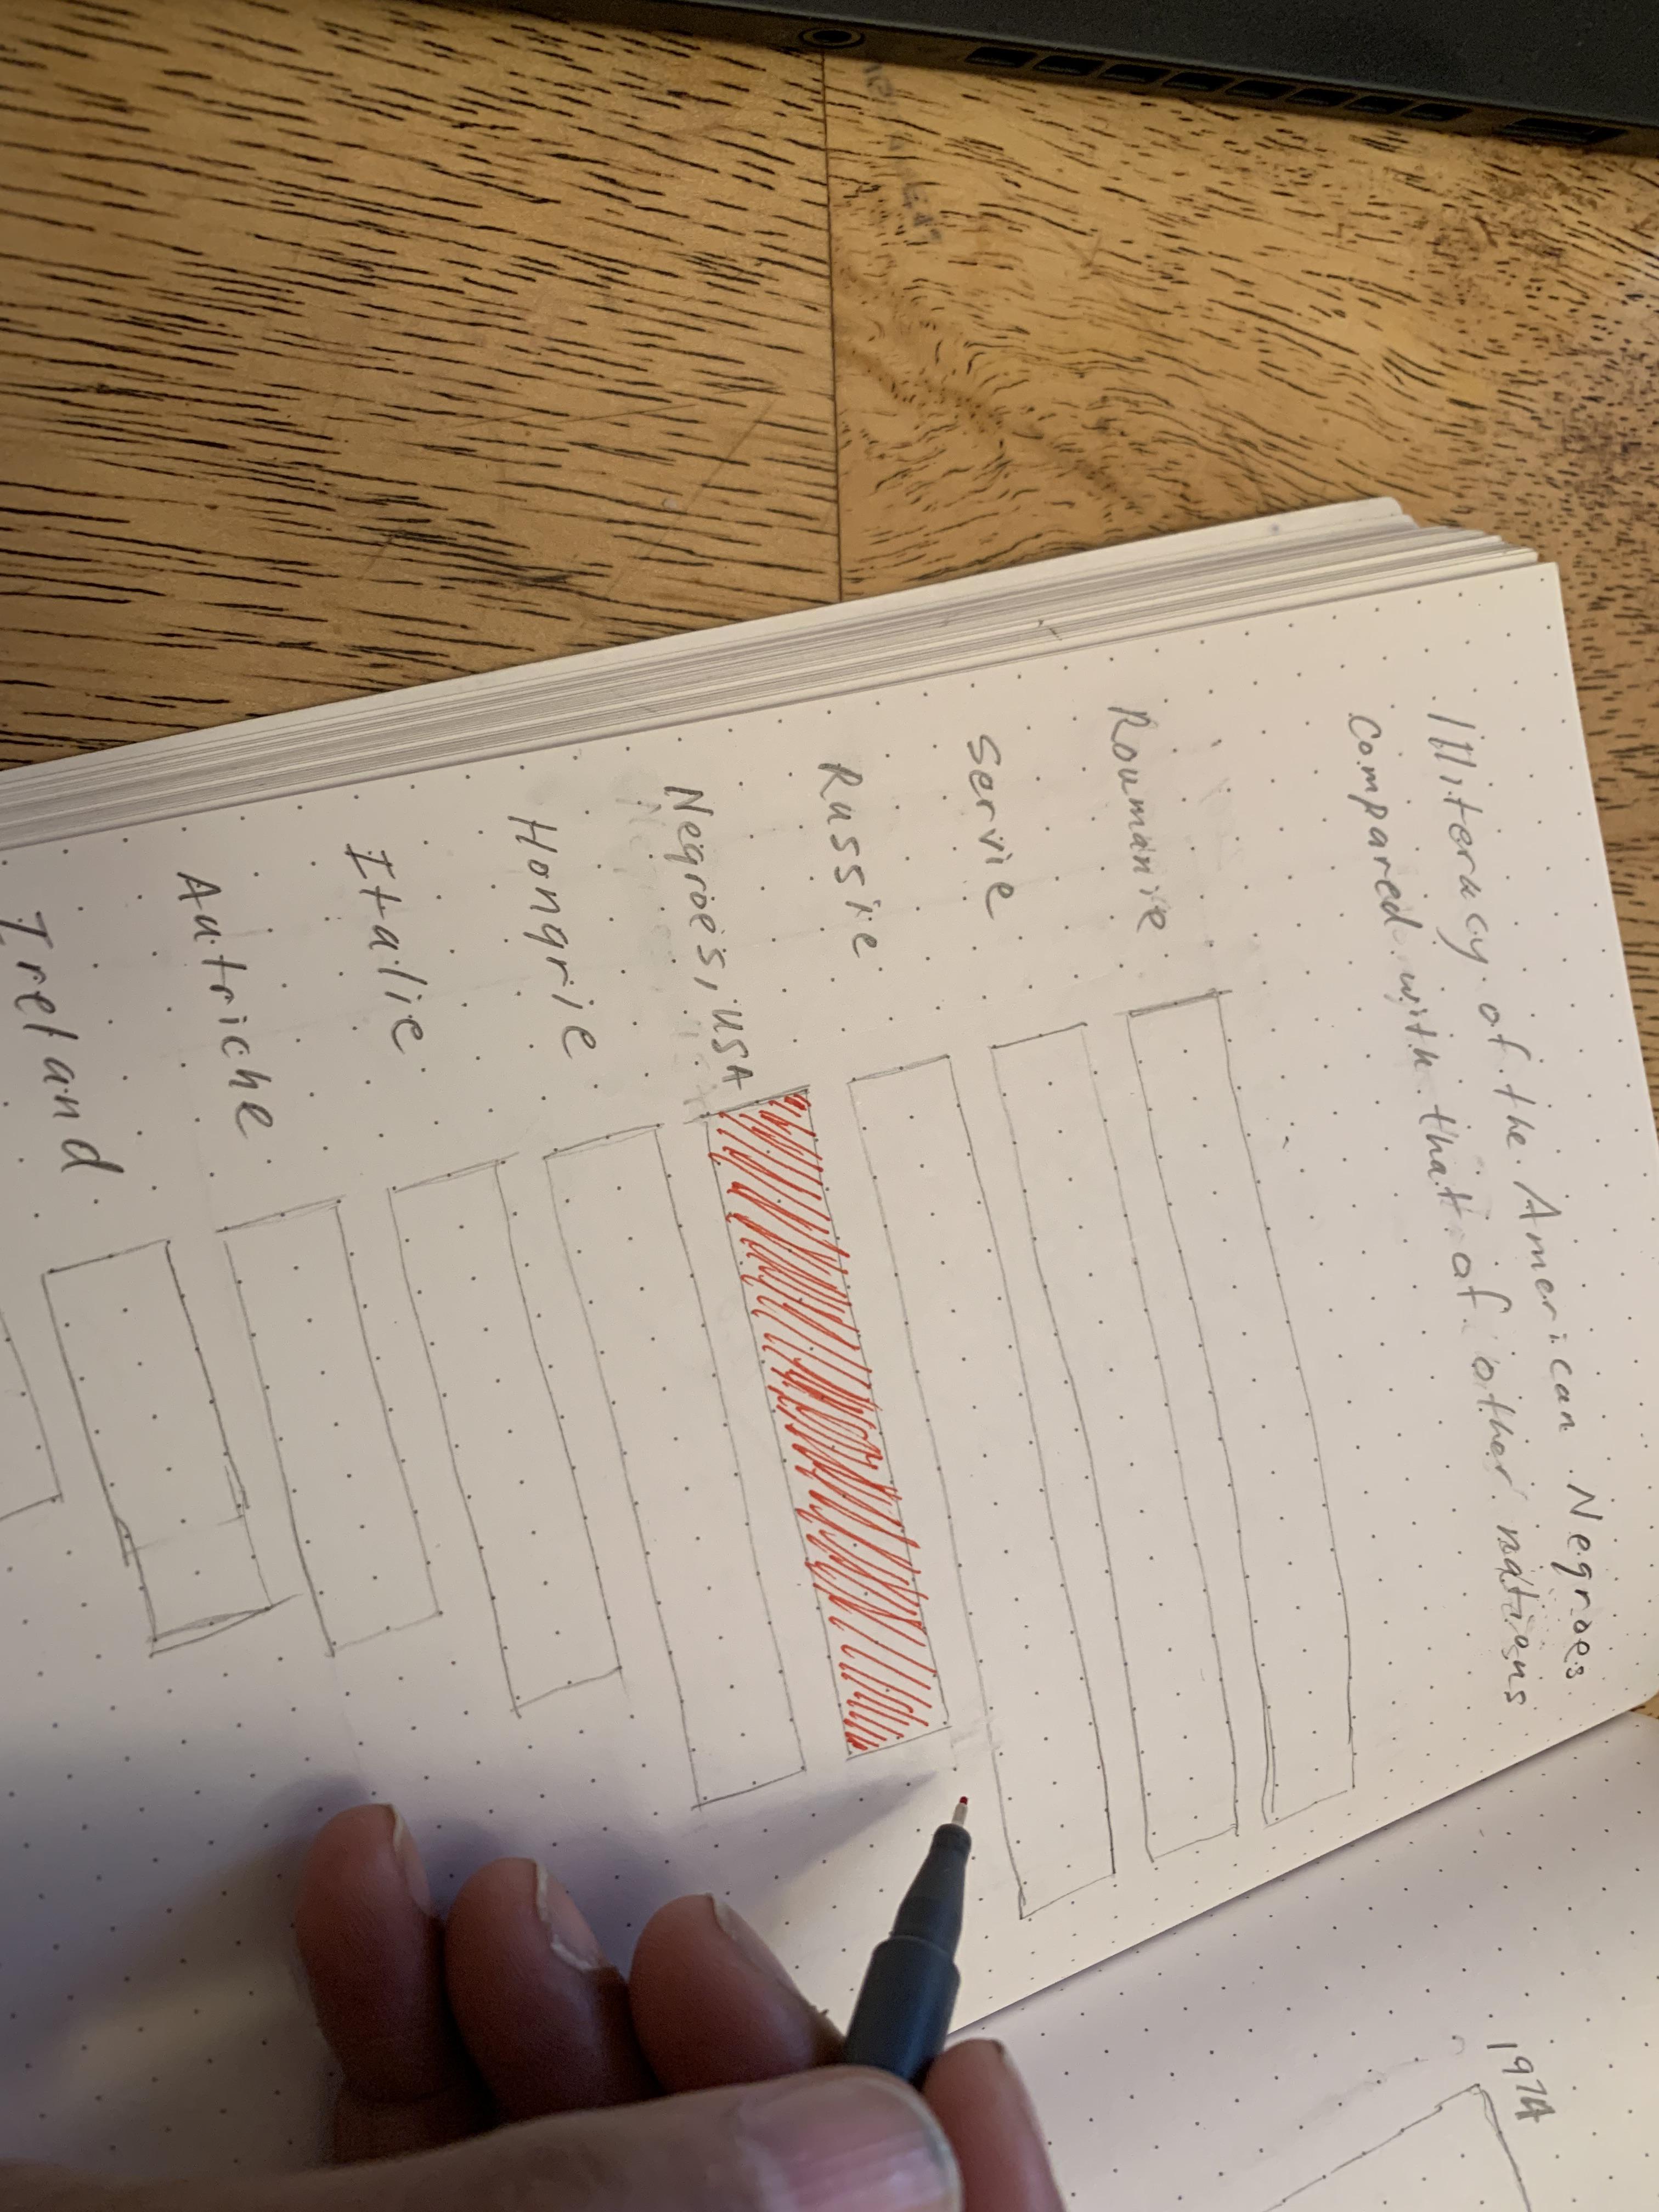 Illiteracy of the American Negroes
compared with that of other nations
Roumanie
Servie
Russie
Negroes, USA
Hongrie
Italie
Autriche
Ireland
1974